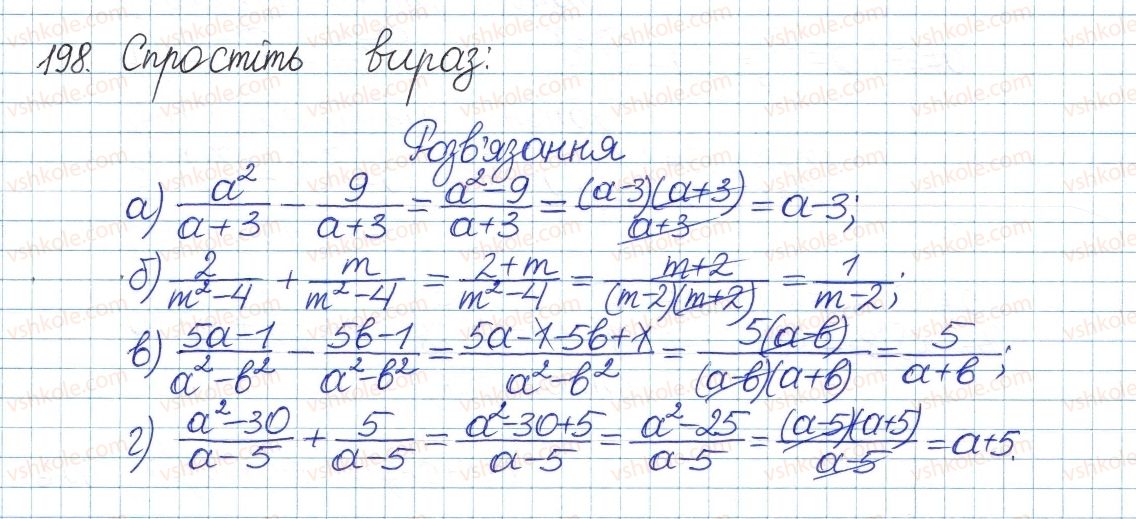 198. Спростіть вираз:
Розв'язання
а) a²/(a+3) − 9/(a+3) = (a²−9)/(a+3) = (a−3)(a+3)/(a+3) = a−3;
б) 2/(m²−4) + m/(m²−4) = (2+m)/(m²−4) = (m+2)/((m−2)(m+2)) = 1/(m−2);
в) (5a−1)/(a²−b²) − (5b−1)/(a²−b²) = (5a−1−5b+1)/(a²−b²) = 5(a−b)/((a−b)(a+b)) = 5/(a+b);
г) (a²−30)/(a−5) + 5/(a−5) = (a²−30+5)/(a−5) = (a²−25)/(a−5) = (a−5)(a+5)/(a−5) = a+5.
vshkole.com